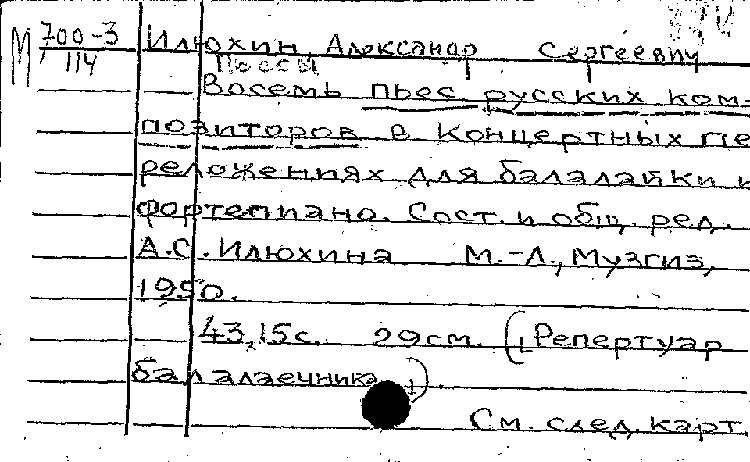 М 700-3 Илюхин, Александр Сергеевич
114 Пьесы
Восемь пьес русских ком-
позиторов в концертных пе
реложениях для балалайки и
фортепиано. Сост. и общ. ред.
А.С. Илюхина М.-Л., Музгиз,
1950.
43, 15 с. 29 см. (Репертуар
балалаечника).
См. след. карт.